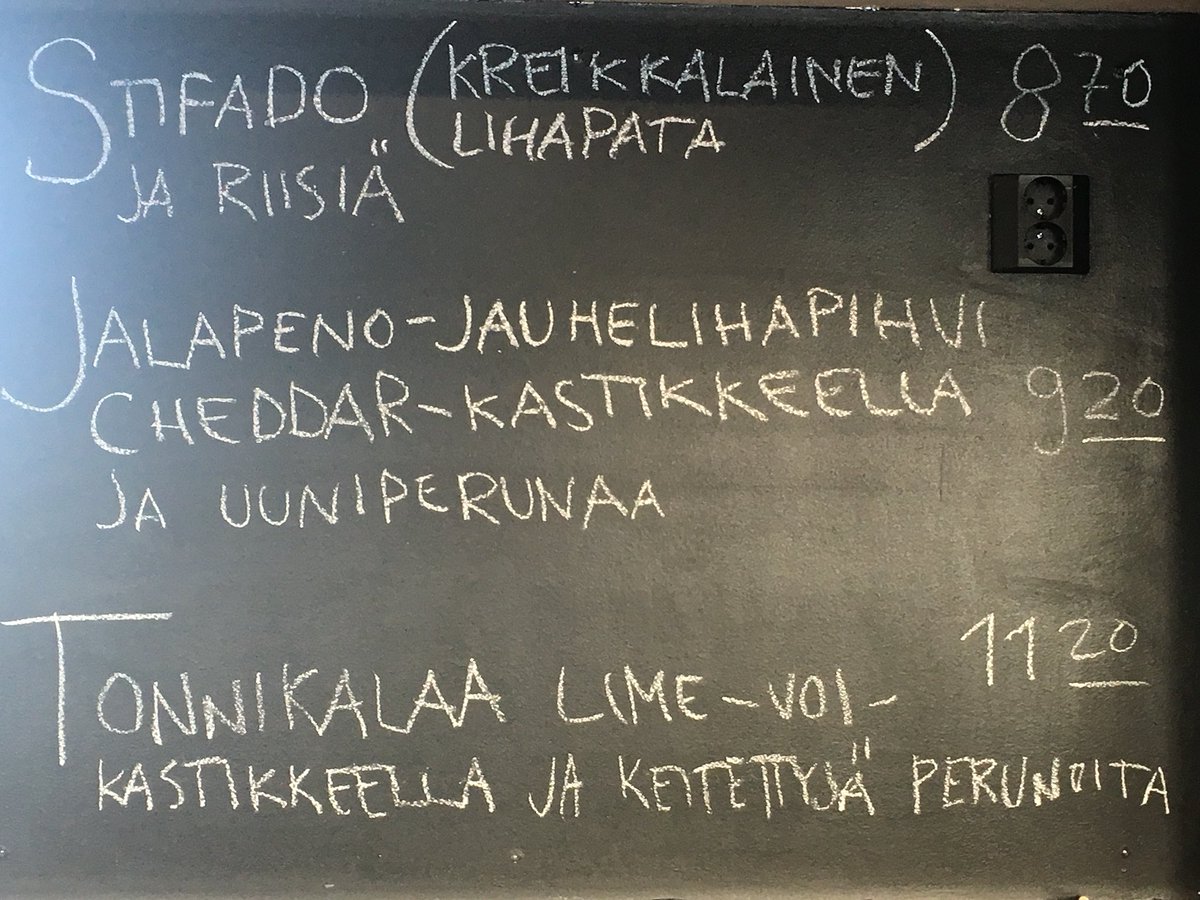 STIFADO (KREIKKALAINEN LIHAPATA) 8 70
JA RIISIÄ
JALAPENO-JAUHELIHAPIHVI
CHEDDAR-KASTIKKEELLA 9 20
JA UUNIPERUNAA
11 20
TONNIKALAA LIME-VOI-
KASTIKKEELLA JA KEITETTYJÄ PERUNOITA